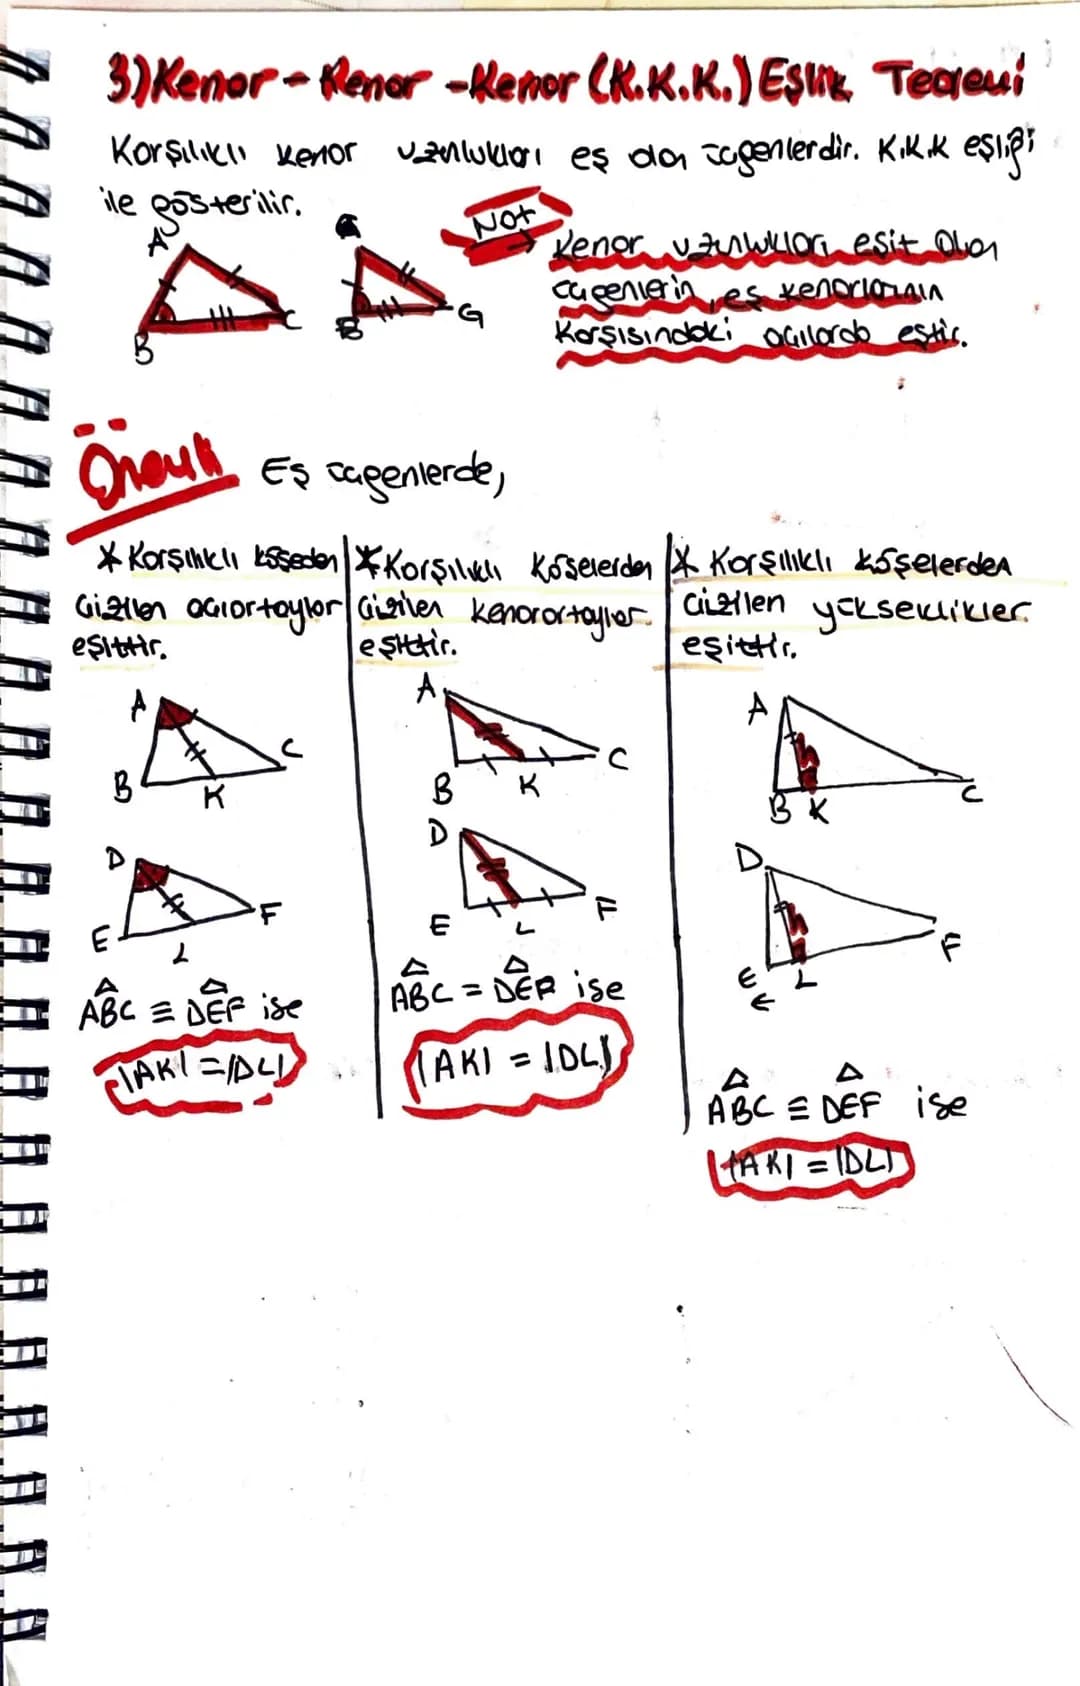 3) Kenar - Kenar - Kenar (K.K.K.) Eşlik Teoremi
Karşılıklı kenar uzunlukları eş olan üçgenlerdir. K.K.K eşliği
ile gösterilir.
Not
Kenar uzunlukları eşit olan
üçgenlerin, eş kenarlarının
karşısındaki açılarda eştir.
A
B
C
B
G
Örnek Eş üçgenlerde,
* Karşılıklı köşeden
çizilen açıortaylar
eşittir.
A
B
K
C
D
E
L
F
ABC ≡ DEF ise
|AK| = |DL|
* Karşılıklı köşelerden
çizilen kenarortaylar
eşittir.
A
B
K
C
D
E
L
F
ABC = DEF ise
|AK| = |DL|
* Karşılıklı köşelerden
çizilen yükseklikler
eşittir.
A
h
B K
C
D
h
E
L
F
E
ABC ≡ DEF ise
|AK| = |DL|